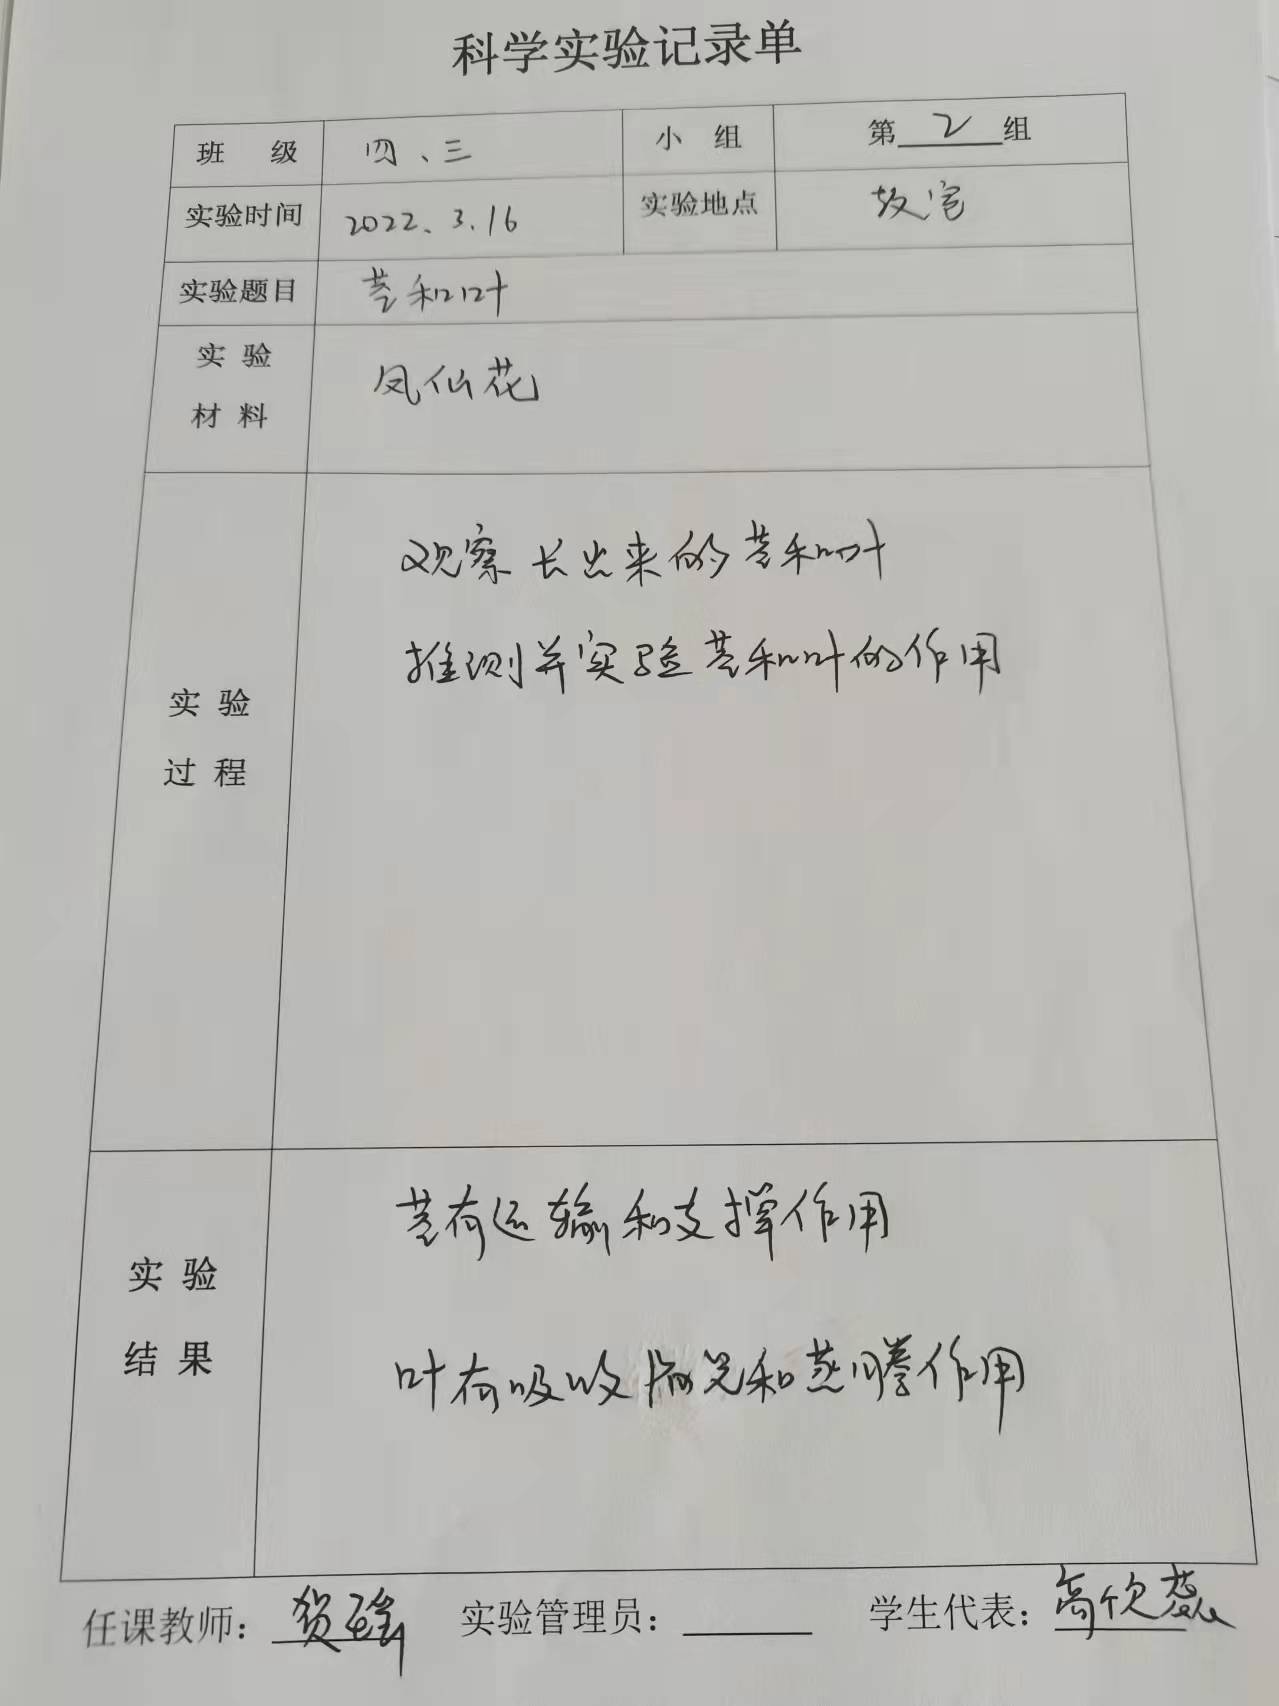 科学实验记录单
班 级 四、三 小 组 第2组
实验时间 2022.3.16 实验地点 教室
实验题目 茎和叶
实 验
材 料
凤仙花
观察长出来的茎和叶
推测并实验茎和叶的作用
实 验
过 程
茎有运输和支撑作用
实 验
结 果
叶有吸收阳光和蒸腾作用
任课教师: 贺 实验管理员: 学生代表: 高欣蕊